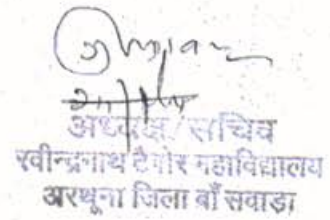 अध्यक्ष/सचिव
रवीन्द्रनाथ टैगोर महाविद्यालय
अरथूना जिला बाँसवाड़ा